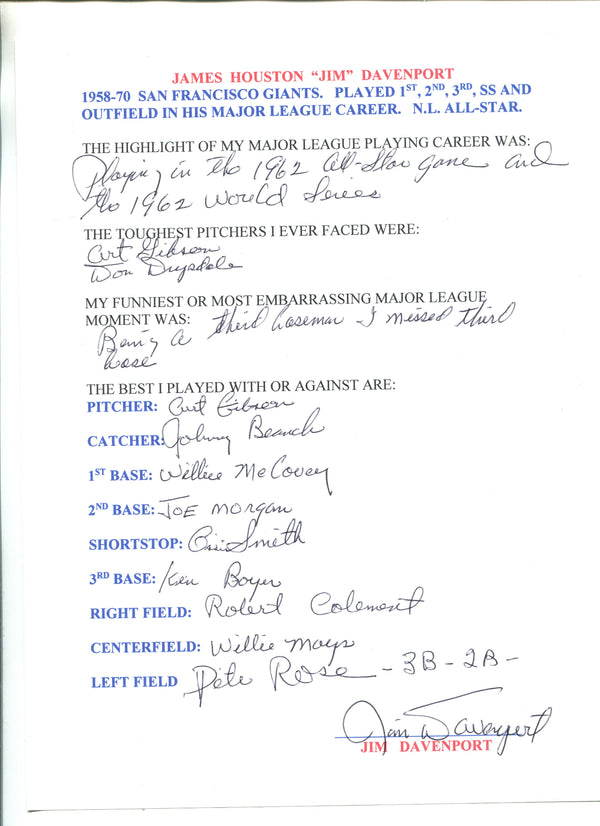 JAMES HOUSTON “JIM” DAVENPORT
1958-70 SAN FRANCISCO GIANTS. PLAYED 1ST, 2ND, 3RD, SS AND
OUTFIELD IN HIS MAJOR LEAGUE CAREER. N.L. ALL-STAR.
THE HIGHLIGHT OF MY MAJOR LEAGUE PLAYING CAREER WAS:
Playing in the 1962 All-Star game and
the 1962 World Series
THE TOUGHEST PITCHERS I EVER FACED WERE:
Curt Gibson
Don Drysdale
MY FUNNIEST OR MOST EMBARRASSING MAJOR LEAGUE
MOMENT WAS: third baseman I missed third
Being a
base
THE BEST I PLAYED WITH OR AGAINST ARE:
PITCHER: Curt Gibson
CATCHER: Johnny Beanch
1ST BASE: Willie McCovey
2ND BASE: JOE MORGAN
SHORTSTOP: Ossie Smith
3RD BASE: Ken Boyer
RIGHT FIELD: Robert Colement
CENTERFIELD: Willie Mays
LEFT FIELD Pete Rose - 3B - 2B -
Jim Davenport
JIM DAVENPORT